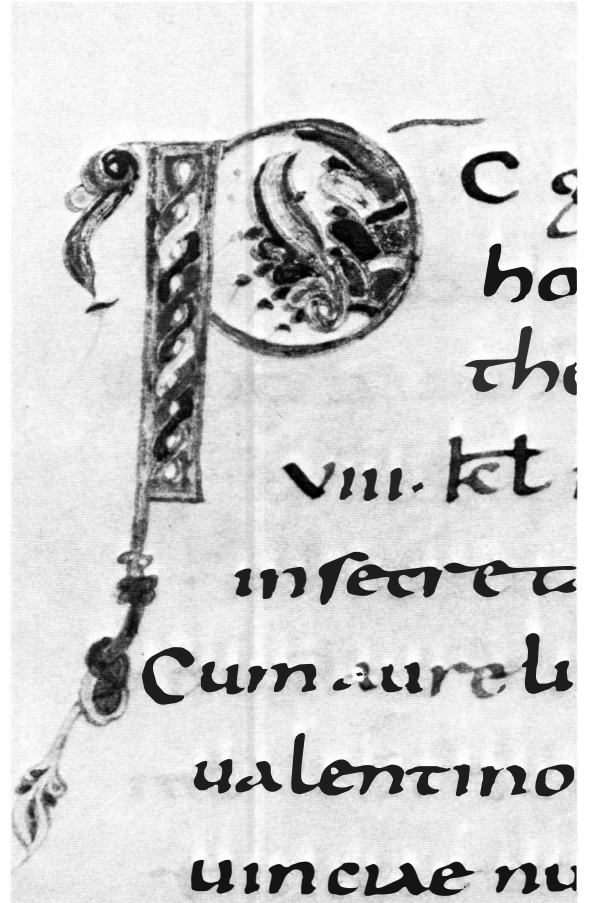 P C g
ho
the
viii. kt
insecreta
Cum aureliu
ualentino
uinciae nu